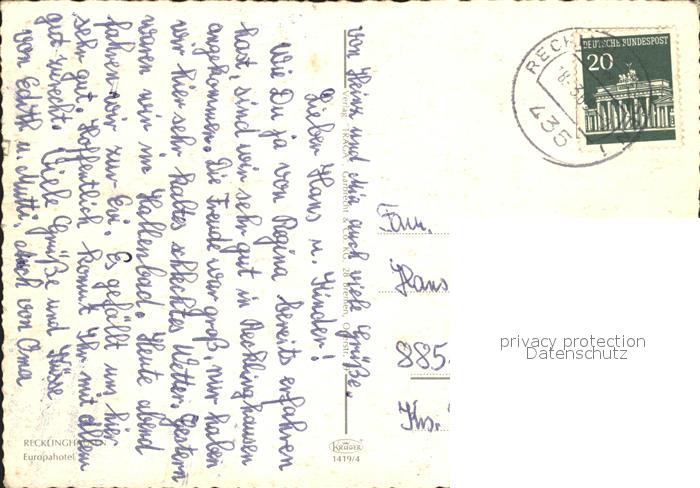 von Heinz und Mia auch viele Grüße.
Lieben Hans u. Kinder!
Wie Du ja von Regina bereits erfahren
hast, sind wir sehr gut in Recklinghausen
angekommen. Die Freude war groß, nur haben
wir hier sehr kaltes schlechtes Wetter. Gestern
waren wir im Hallenbad. Heute abend
fahren wir zur Evi. Es gefällt uns hier
sehr gut. Hoffentlich kommt Ihr mit allem
gut zurecht. Viele Grüße und Küsse
von Edith u. Mutti, auch von Oma
Verlag "TRAGA" Garthe & Co KG, 28 Bremen, Oberstr.
DEUTSCHE BUNDESPOST
20
RECK
435
Fam.
Hans
885
Krs.
privacy protection
Datenschutz
KRÜGER
1419/4
RECKLINGHAUSEN
Europahotel